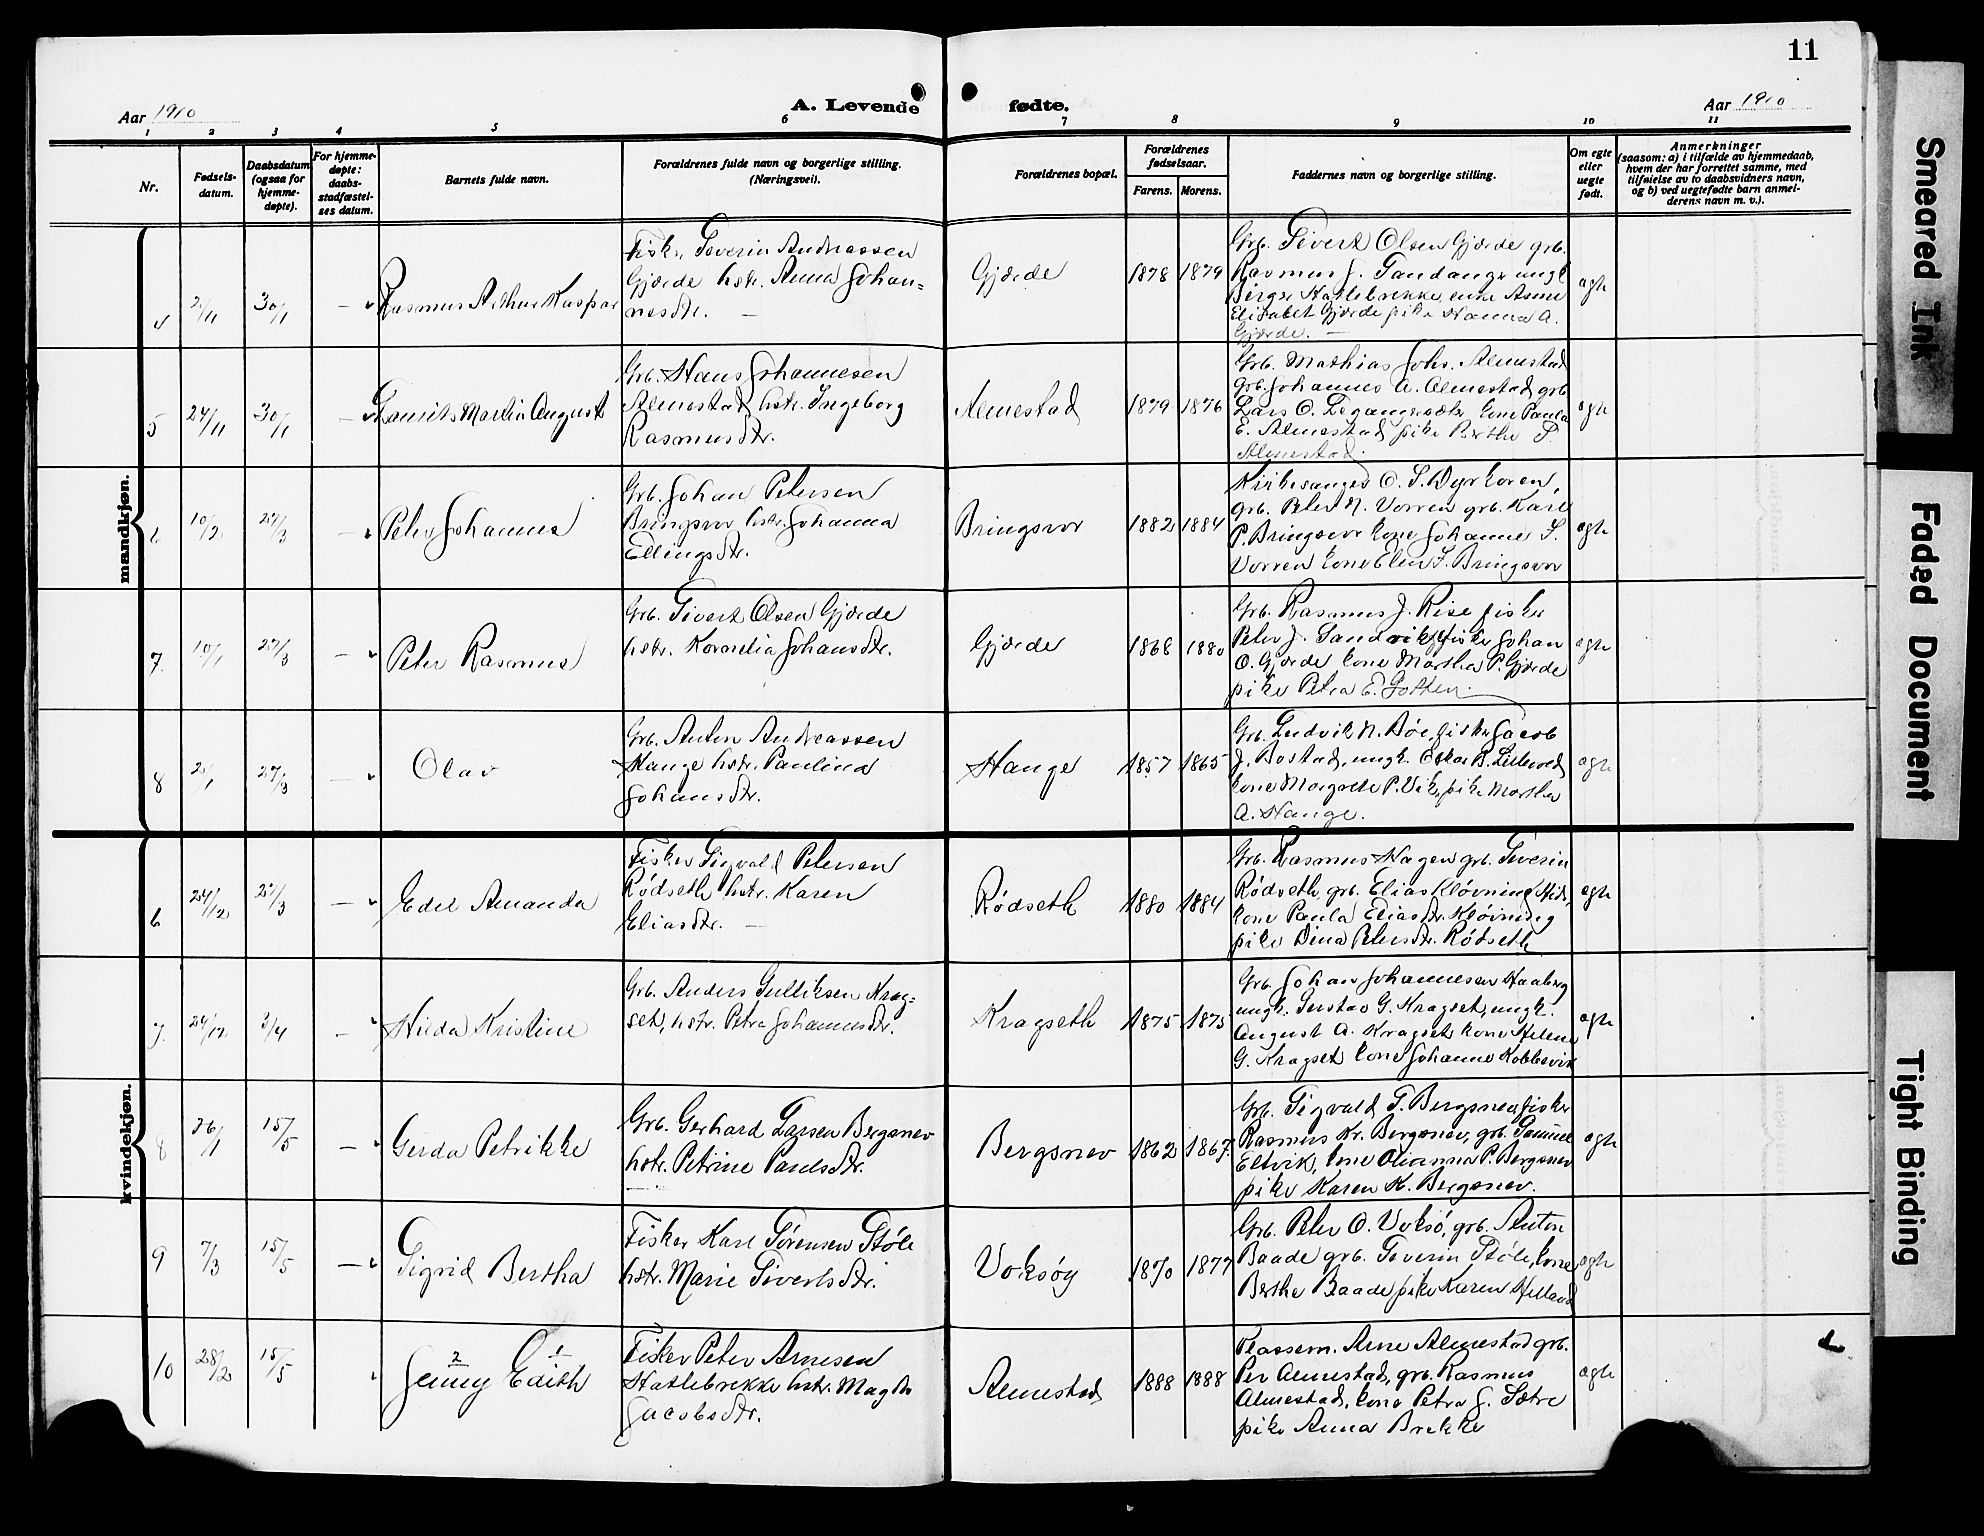 11
Aar 1910
A. Levende fødte.
Aar 1910
1 2 3 4 5 6 7 8 9 10 11
Nr.
Fødsels-
datum.
Daabsdatum
(ogsaa for
hjemme-
døpte).
For hjemme-
døpte:
daabs-
stadfæstel-
ses datum.
Barnets fulde navn.
Forældrenes fulde navn og borgerlige stilling.
(Næringsvei).
Forældrenes bopæl.
Forældrenes
fødselsaar.
Farens. Morens.
Faddernes navn og borgerlige stilling.
Om egte
eller
uegte
født.
Anmerkninger
(saasom: a) i tilfælde av hjemmedaab,
hvem der har forrettet samme, med
tilføielse av to daabsvidners navn,
og b) ved uegtefødte barn anmel-
derens navn m. v.).
mandkjøn.
4
2/11
30/1
Rasmus Arthur Kaspar
Fisker Severin Andreassen
Gjærde hstr. Anna Johan=
nesdtr. —
Gjærde
1878 1879
Grb. Sivert Olsen Gjærde grb.
Rasmus J. Tandanger ungk
Birger Hatlebrekke, enke Anne
Elisabet Gjærde pike Hanna A.
Gjærde. —
egte
5
24/11
30/1
Laurits Martin August
Grb. Hans Johannesen
Almestad hstr. Ingeborg
Rasmusdtr.
Almestad
1879 1876
Grb. Mathias Johs. Almestad
grb. Johannes A. Almestad grb
Lars O. Legangersæter kone Paula
E. Almestad pike Berthe P.
Almestad.
egte
6
10/2
27/3
Peter Johannes
Grb. Johan Petersen
Bringsvor hstr. Johanna
Ellingsdtr.
Bringsvor
1882 1884
Kirkesanger O. S. Dyrkoren,
grb. Peter N. Vorren grb. Karl
P. Bringsvor kone Johanne S.
Vorren kone Elen J. Bringsvor
egte
7.
10/1
27/3
Peter Rasmus
Grb. Sivert Olsen Gjærde
hstr. Kornelia Johansdtr.
Gjærde
1868 1880
Grb. Rasmus J. Rise fisker
Peter J. Sandvik fisker Johan
O. Gjærde kone Martha P. Gjærde
pike Petra E. Goksen.
egte
8
2/1
27/3
Olav
Grb. Anton Andreassen
Hauge hstr. Paulina
Johansdtr.
Hauge
1857 1865
Grb. Ludvik N. Bøe, fisker Jacob
J. Bostad, ungk. Oskar B. Lillevold
kone Margrete P. Vik, pike Martha
A. Hauge.
egte
kvindekjøn.
6
24/12
27/3
Edel Amanda
Fisker Sigvald Petersen
Rødseth hstr. Karen
Eliasdtr. —
Rødseth
1880 1884
Grb. Rasmus Hagen grb. Severin
Rødseth, grb. Elias Kløvning Hids,
kone Paula Eliasdtr. Kløvning
pike Dina Petersdtr. Rødseth
egte
7.
24/12
3/4
Hilda Kristine
Grb. Anders Gulliksen Krag=
set, hstr. Petra Johannesdtr.
Kragseth
1875 1875
Grb. Johan Johannesen Haaberg
ungk. Gustav G. Kragset, ungk.
August A. Kragset, kone Helene
G. Kragset kone Johanne Koblevik
egte
8
26/1
15/5
Gerda Petrikke
Grb. Gerhard Larsen Bergsnev
hstr. Petrine Paulsdtr.
Bergsnev
1862 1867.
Grb. Sigvald T. Bergsnev fisker
Rasmus Kr. Bergsnev, grb. Samuel
Eltvik, kone Olianna P. Bergsnev
pike Karen K. Bergsnev.
egte
9
7/3
15/5
Sigrid Bertha
Fisker Karl Sørensen Støle
hstr. Marie Sivertsdtr.
Voksøy
1870 1877
Grb. Peter O. Voksø, grb. Anton
Baade grb. Severin Støle, kone
Berthe Baade pike Karen Helland
egte
10
28/2
15/5
2 1
Jenny Edith
Fisker Peter Arnesen
Hatlebrekke hstr. Magda
Jacobsdtr.
Almestad
1888 1888
Plassem. Arne Almestad grb.
Per Almestad, grb. Rasmus
Almestad, kone Petra J. Sætre
pike Anna Brekke
egte
Smeared Ink
Faded Document
Tight Binding